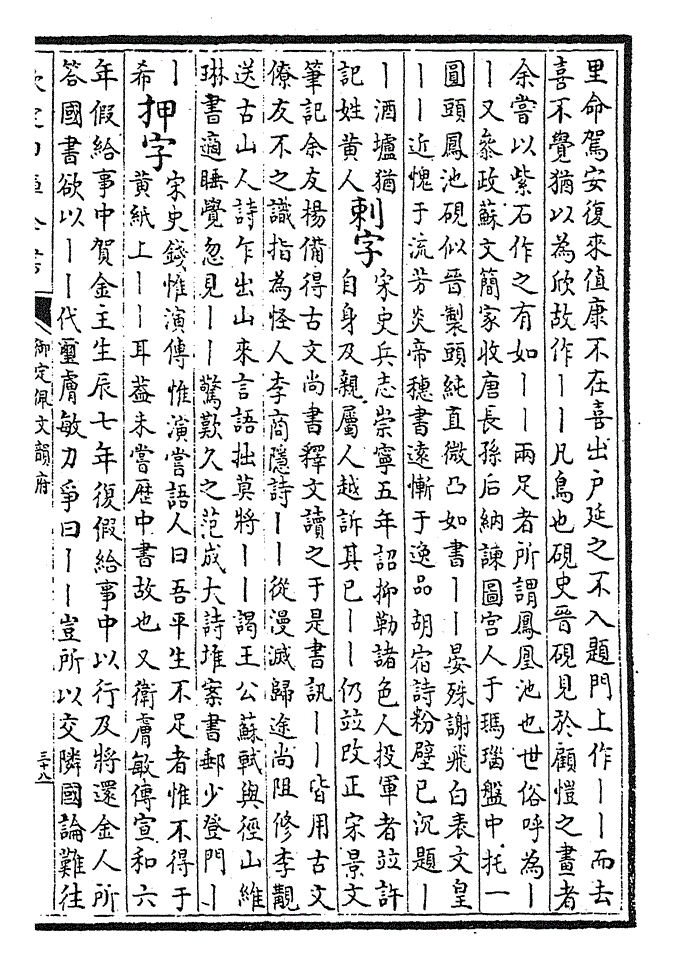 里命駕安復來值康不在喜出户延之不入題門上作丨丨而去
喜不覺猶以為欣故作丨丨凡鳥也硯史晉硯見於顧愷之畫者
余嘗以紫石作之有如丨丨兩足者所謂鳳凰池也世俗呼為丨
丨又叅政蘇文簡家收唐長孫后納諫圖宫人于瑪瑙盤中托一
圓頭鳳池硯似晉製頭純直微凸如書丨丨晏殊謝飛白表文皇
丨丨近愧于流芳炎帝穗書遠慚于逸品胡宿詩粉壁已沉題丨
丨酒壚猶
記姓黄人
刺字
宋史兵志崇寧五年詔抑勒諸色人投軍者竝許
自身及親屬人越訴其已丨丨仍竝改正宋景文
筆記余友楊備得古文尚書釋文讀之于是書訊丨丨皆用古文
僚友不之識指為怪人李商隱詩丨丨從漫滅歸途尚阻修李觀
送古山人詩乍出山來言語拙莫將丨丨謁王公蘇軾與徑山維
琳書適睡覺忽見丨丨驚歎久之范成大詩堆案書郵少登門丨
丨
希
押字
宋史錢惟演傳惟演嘗語人曰吾平生不足者惟不得于
黄紙上丨丨耳葢未嘗歴中書故也又衛膚敏傳宣和六
年假給事中賀金主生辰七年復假給事中以行及將還金人所
答國書欲以丨丨代璽膚敏力爭曰丨丨豈所以交隣國論難往
御定佩文韻府
三十八